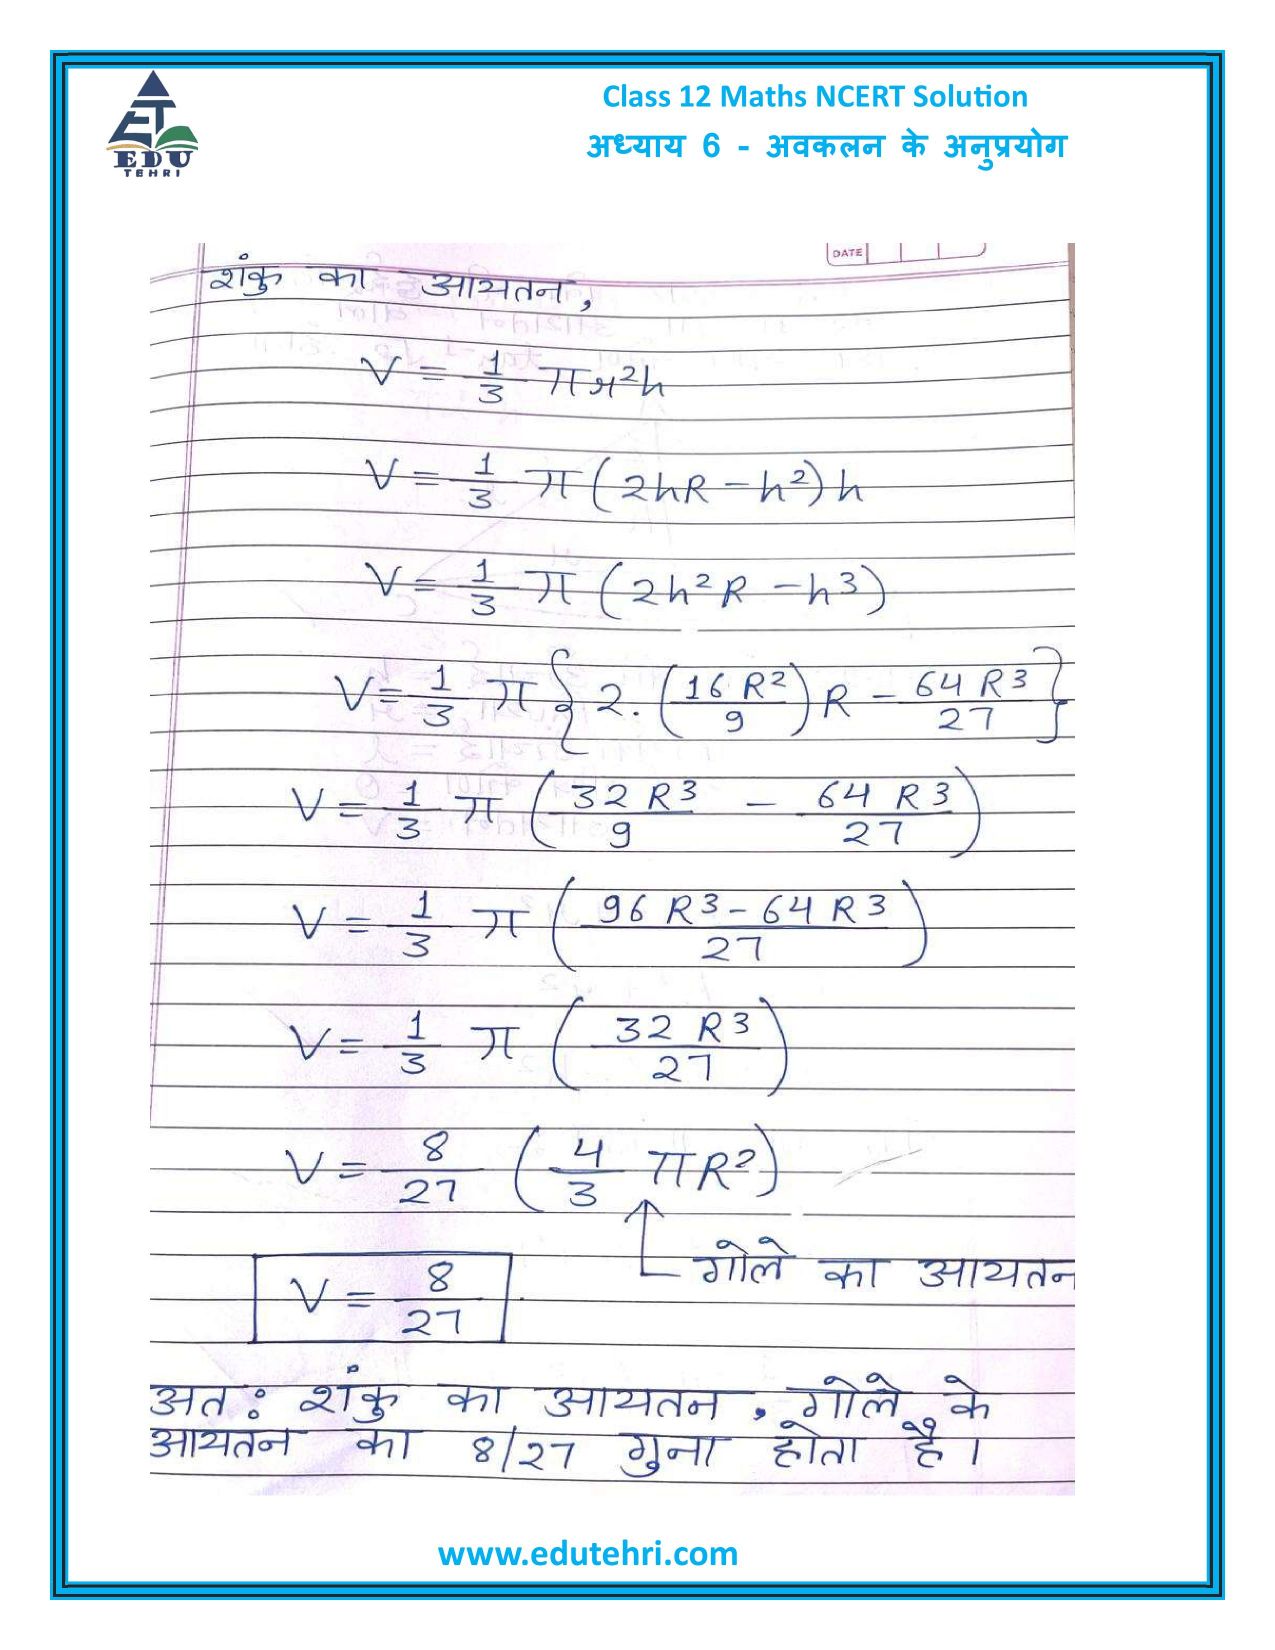 Class 12 Maths NCERT Solution
अध्याय 6 - अवकलन के अनुप्रयोग
EDU
TEHRI
DATE
शंकु का आयतन,
V = 1/3 πr²h
V = 1/3 π (2hR - h²) h
V = 1/3 π (2h²R - h³)
V = 1/3 π {2. (16 R²/9) R - 64 R³/27}
V = 1/3 π (32 R³/9 - 64 R³/27)
V = 1/3 π (96 R³ - 64 R³/27)
V = 1/3 π (32 R³/27)
V = 8/27 (4/3 πR²)
गोले का आयतन
V = 8/27
अत: शंकु का आयतन, गोले के
आयतन का 8/27 गुना होता है।
www.edutehri.com